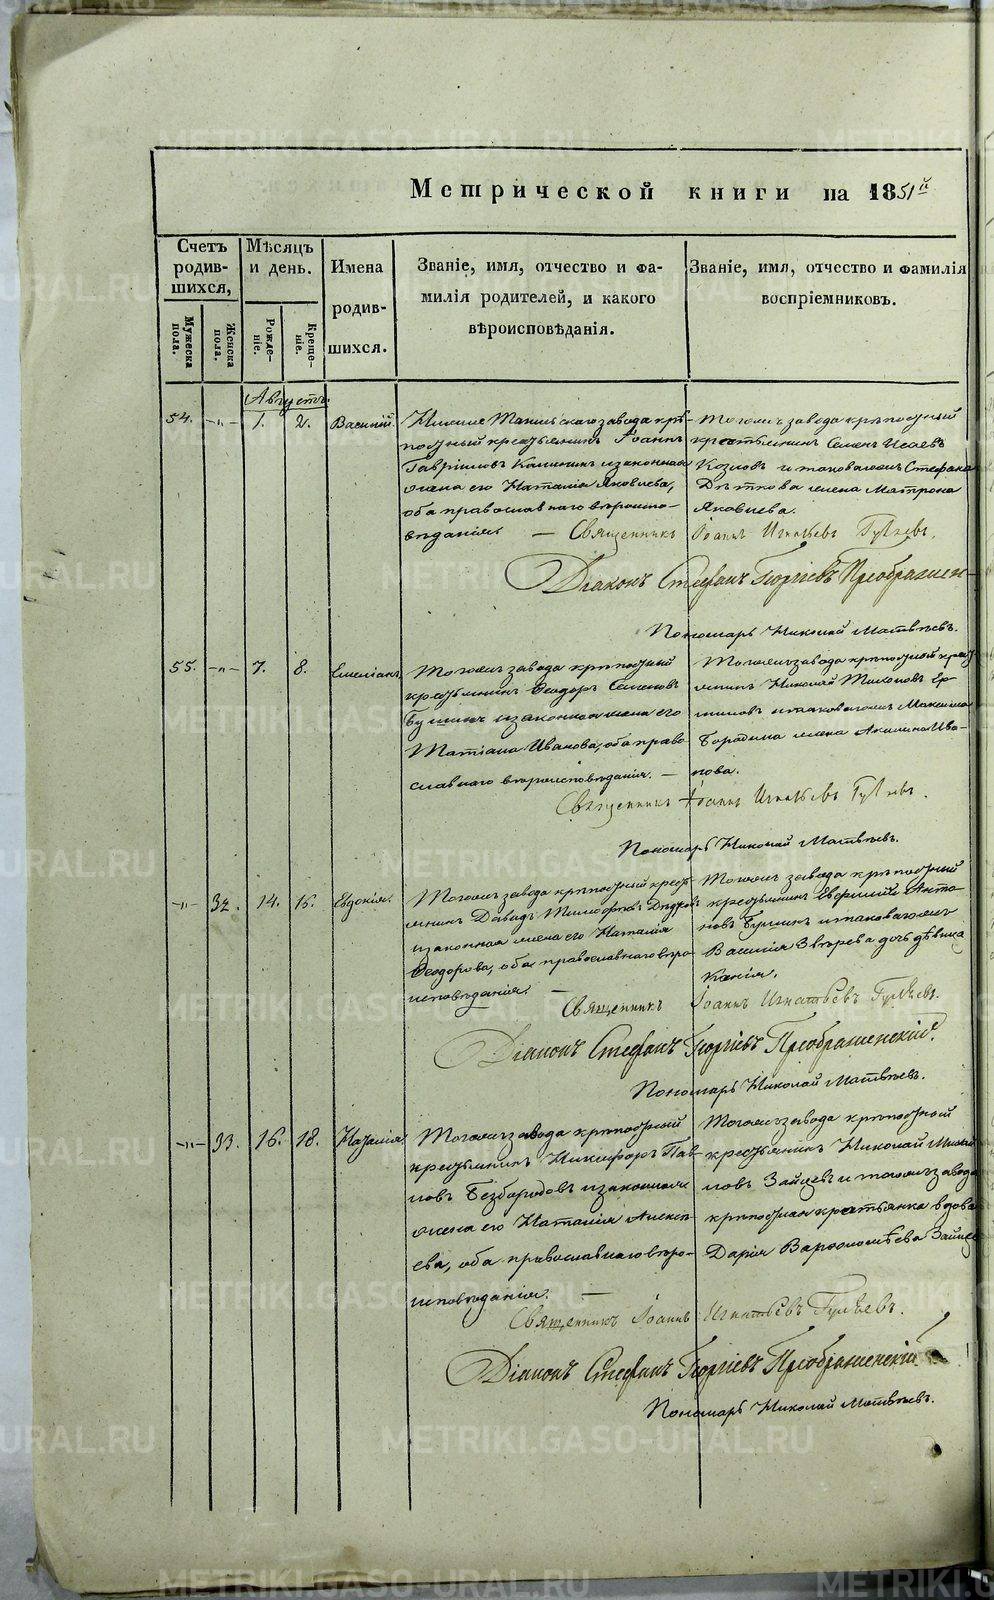 METRIKI.GASO-URAL.RU
Метрической книги на 1851й
Счетъ родив-шихся,
Мѣсяцъ и день.
Имена родив-шихся.
Званіе, имя, отчество и фа-
милія родителей, и какого
вѣроисповѣданія.
Званіе, имя, отчество и фамилія
воспріемниковъ.
Мужеска пола.
Женска пола.
Рожде-ніе.
Креще-ніе.
Августъ.
54. -„- 1. 2. Василій.
завода крѣ-
постный крестьянинъ Іоаннъ
Гавріиловъ Калининъ и законная
жена его Наталія Яковлева,
оба православнаго вѣроиспо-
вѣданія
Тогожъ завода крѣпостный
крестьянинъ Семенъ Исаевъ
Козловъ и таковагожъ Стефана
жена Матрона
Яковлева.
Священникъ Іоаннъ Игнатьевъ
Діаконъ Стефанъ Георгіевъ Преображен-
Пономарь Николай Матвѣевъ.
55. -„- 7. 8. Емеліанъ.
Тогожъ завода крѣпостный
крестьянинъ Ѳеодоръ Семеновъ
и законная жена его
Татіана Иванова, оба право-
славнаго вѣроисповѣданія. —
Тогожъ завода крѣпостный крест
янинъ Николай Тихоновъ Ер-
миловъ и таковагожъ Максима
Бородина жена Акилина Ива-
нова.
Священникъ Іоаннъ Игнатьевъ
Пономарь Николай Матвѣевъ.
-„- 32. 14. 15. Евдокія.
Тогожъ завода крѣпостный крест
янинъ Давидъ Тимофѣевъ
и законная жена его Наталія
Ѳеодорова, оба православнаго вѣро-
исповѣданія. —
Тогожъ завода крѣпостный
крестьянинъ Евфимій Анто-
новъ и таковагожъ
Василія Звѣрева дочь дѣвица
Ксенія.
Священникъ Іоаннъ Игнатьевъ
Діаконъ Стефанъ Георгіевъ Преображенскій.
Пономарь Николай Матвѣевъ.
-„- 33. 16. 18. Наталія.
Тогожъ завода крѣпостный
крестьянинъ Никифоръ Пав-
ловъ Безбородовъ и законная
жена его Наталія Алексѣ-
ева, оба православнаго вѣро-
исповѣданія. —
Тогожъ завода крѣпостный
крестьянинъ Николай
Зайцевъ и тогожъ завода
крѣпостная крестьянка вдова
Дарія Варѳоломѣева
Священникъ Іоаннъ Игнатьевъ
Діаконъ Стефанъ Георгіевъ Преображенскій
Пономарь Николай Матвѣевъ.